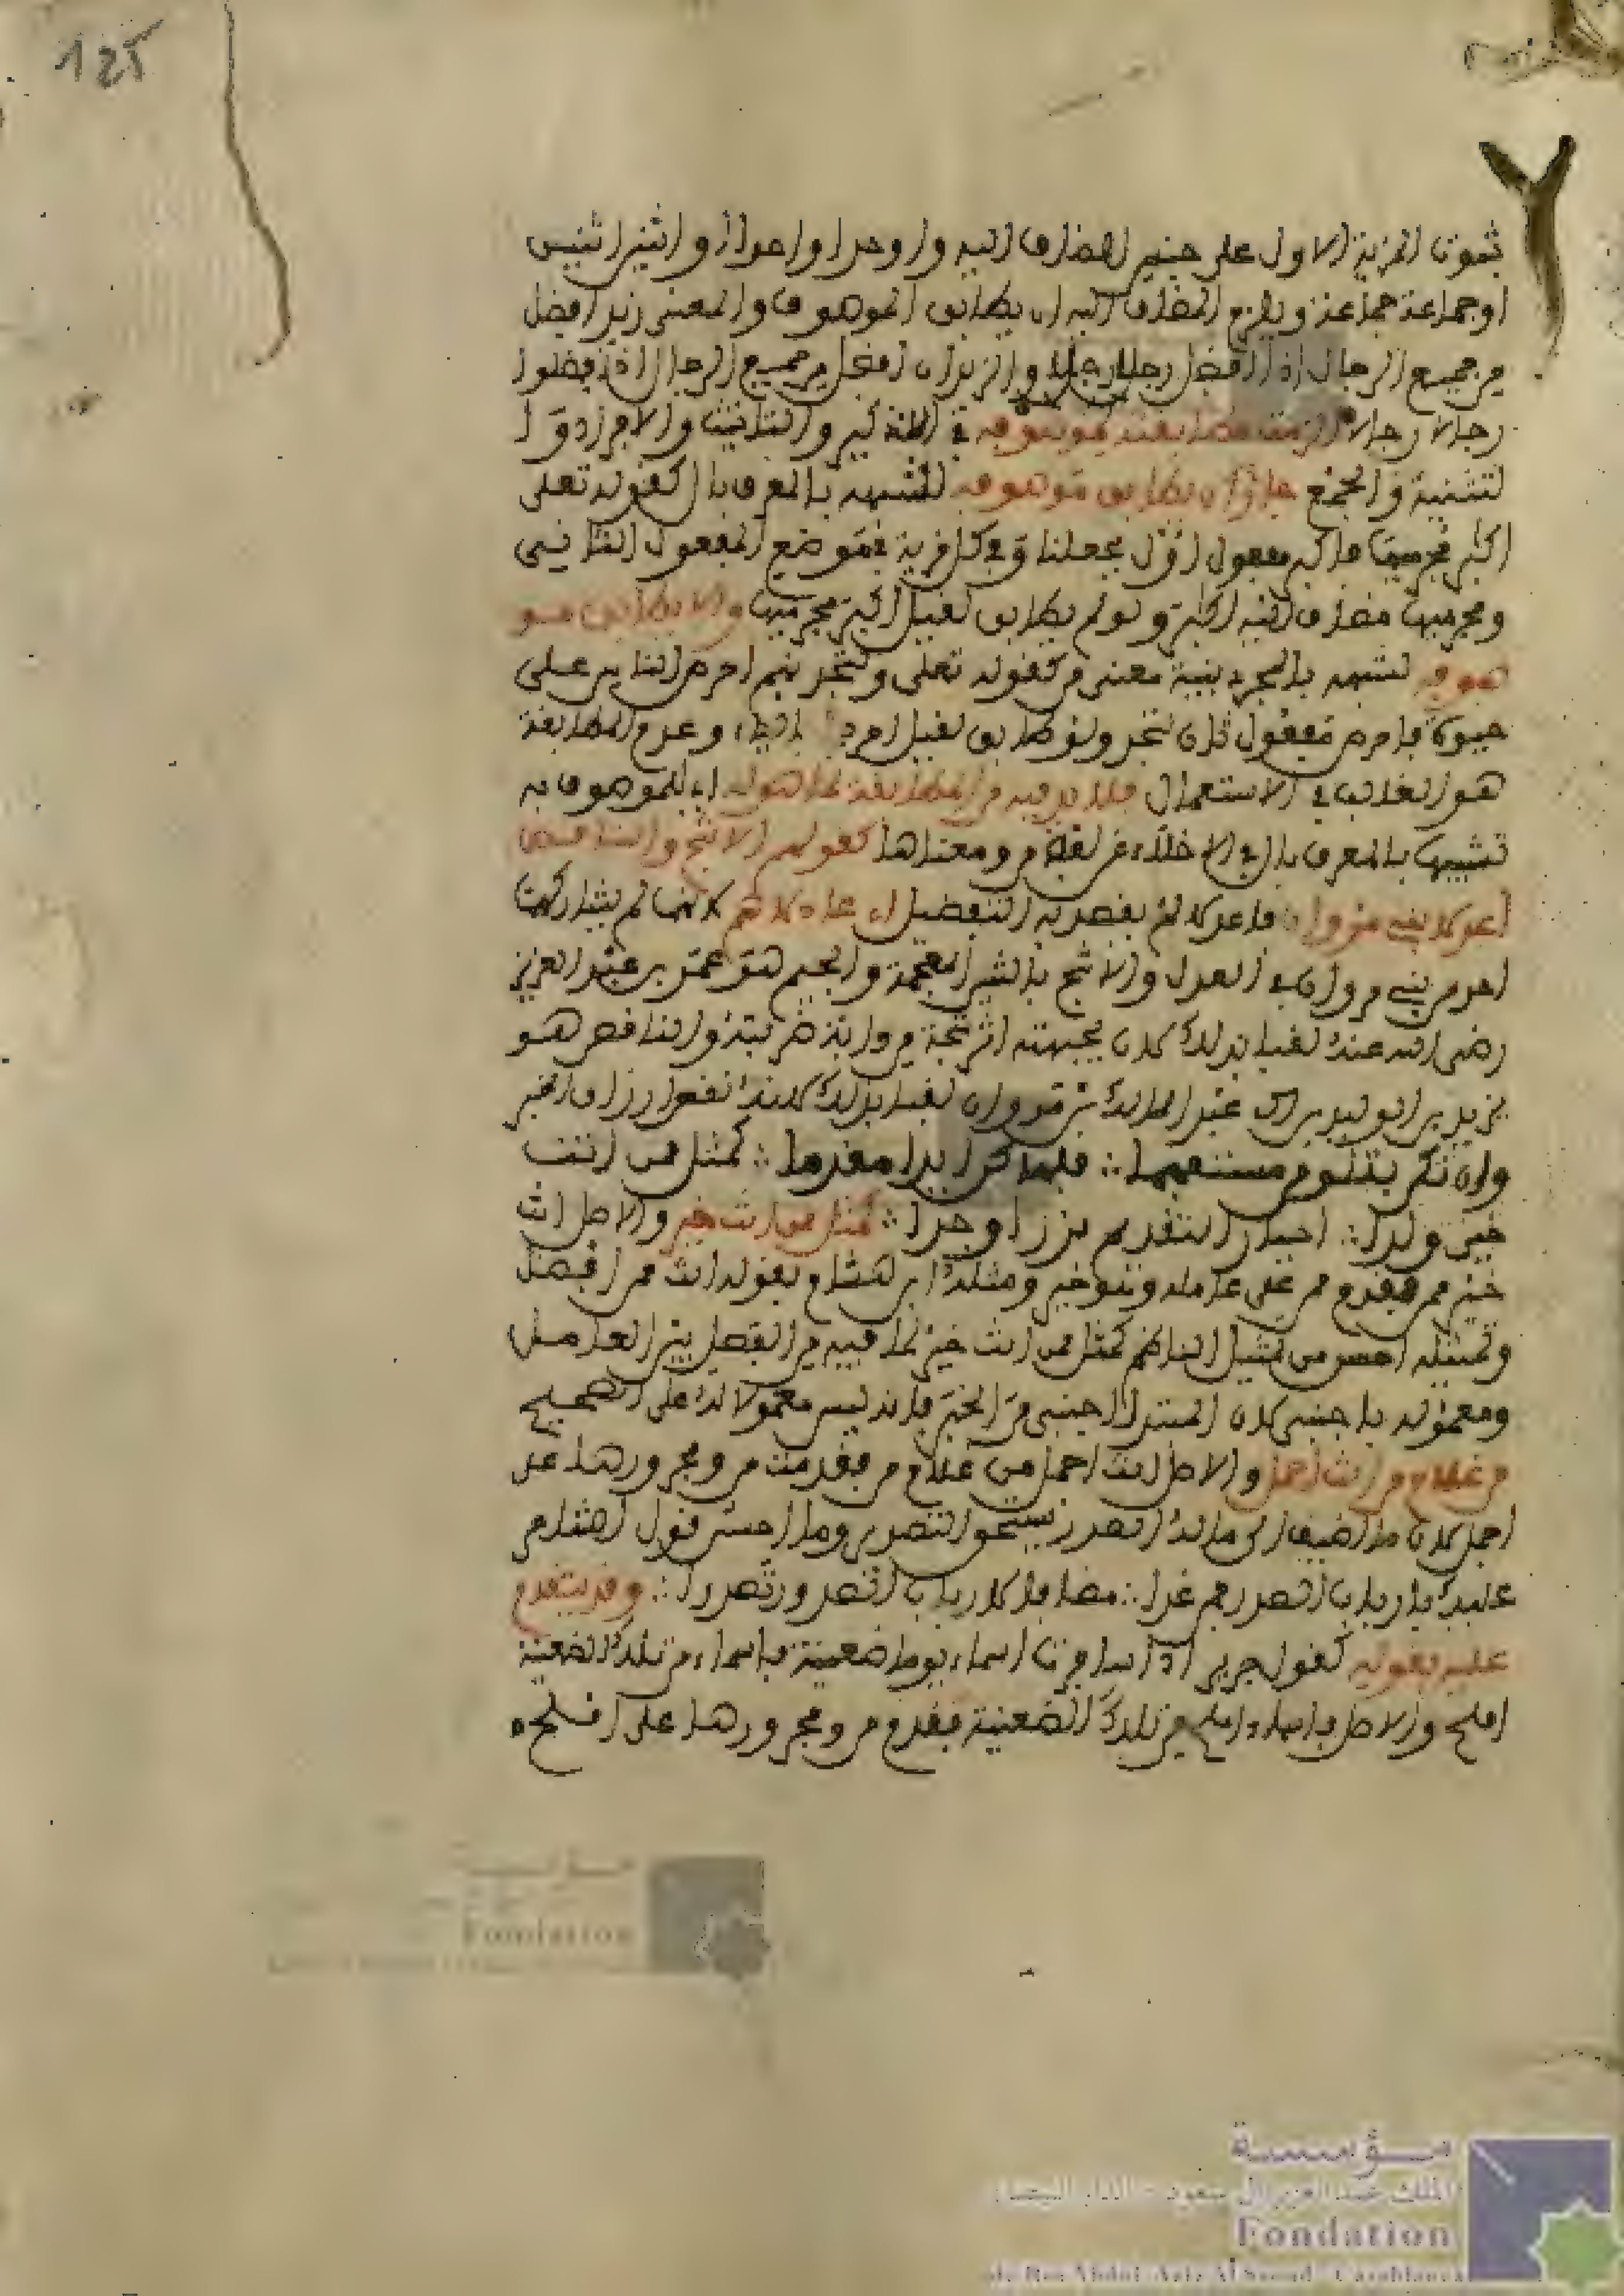 125
ثبوت المزية للاول على جنس المضاف اليه واروحدا واحدا او اثنين اثنين
او جماعة جماعة ويلزم المضاف اليه ان يطابق الموصوف والمعنى زيد افضل
من جميع الرجال اذا افضل رجلا رجلا والزيدان افضل من جميع الرجال اذا فضلوا
رجالا رجالا الزمت مطابقته في التذكير والتانيث والافراد و ا
لتثنية والجمع جاز ان يطابق موصوفه للشبهه بالمعرف بال كقوله تعلى
اكابر مجرميها فاكابر مفعول اول بجعلنا وفي كل قرية في موضع المفعول الثاني
ومجرميها مضاف اليه اكابر ولو لم يطابق لقيل اكبر مجرميها والا يطابق مو
صوفه لشبهه بالمجرد بنية معنى من كقوله تعلى ولتجدنهم احرص الناس على
حيوة فاحرص مفعول ثان لتجد ولو طابق لقيل احرصي بالياء وعدم المطابقة
هو الغالب في الاستعمال فلا بد فيه من المطابقة لما هو له اي للموصوف به
تشبيها بالمعرف بال في الاخلاء عن لفظ من ومعناها كقولهم الاشج والناقص
اعدلا بني مروان فاعدلا لم يقصد به التفضيل اي عادلاهم لانهما لم يشاركهما
احد من بني مروان في العدل والاشج بالشين المعجمة والجيم هو عمر بن عبد العزيز
رضي الله عنه لقب بذلك لان بجبهته اثر شجة من دابة ضربته والناقص هو
يزيد بن الوليد بن عبد الملك بن مروان لقب بذلك لانه نقص ارزاق الجند
وان تكن بتلو من مستفهما ∴ فلهما كن ابدا مقدما ∴ كمثل ممن انت
خير ولدا ∴ اخبار التقديم نزرا وجدا ∴ كمثل ممن انت خير والاصل انت
خير ممن فقدم ممن على عامله وهو خير ومثله ابن هشام بقوله انت ممن افضل
وتمثيله احسن من تمثيل الناظم كمثل ممن انت خير لما فيه من الفصل بين العامل
ومعموله باجنبي لان المبتدا اجنبي من الخبر فانه ليس معمولا له على الصحيح
من غلام من انت اجمل والاصل انت اجمل من غلام من فقدمت من ومجرورها على
اجمل لان ما اضيف الى ماله الصدر يستحق التصدير وما احسن قول هشام
عليك بارباب الصدور فمن غدا ∴ مضافا لارباب الصدور تصدرا ∴ وقد يتقدم
عليه بقوله كقول جرير اذا سايرت اسماء يوما ضعينة فاسماء من تلك الضعينة
املح والاصل فاسماء املح من تلك الضعينة فقدم من ومجرورها على املح
مؤسسة
Fondation
مؤسسة
الملك عبد العزيز آل سعود - الدار البيضاء
Fondation
du Roi Abdul-Aziz Al Saoud - Casablanca